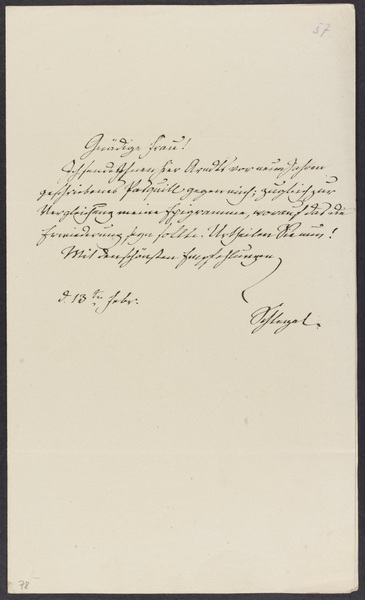 57
Gnädige Frau!
Ich sende Ihnen hier Arndts vor neun Jahren
geschriebenes Pasquill gegen mich; zugleich zur
Vergleichung meine Epigramme, worauf das die
Erwiederung seyn sollte. Urtheilen Sie nun!
Mit den schönsten Empfehlungen
d. 13ten Febr.
Schlegel.
78